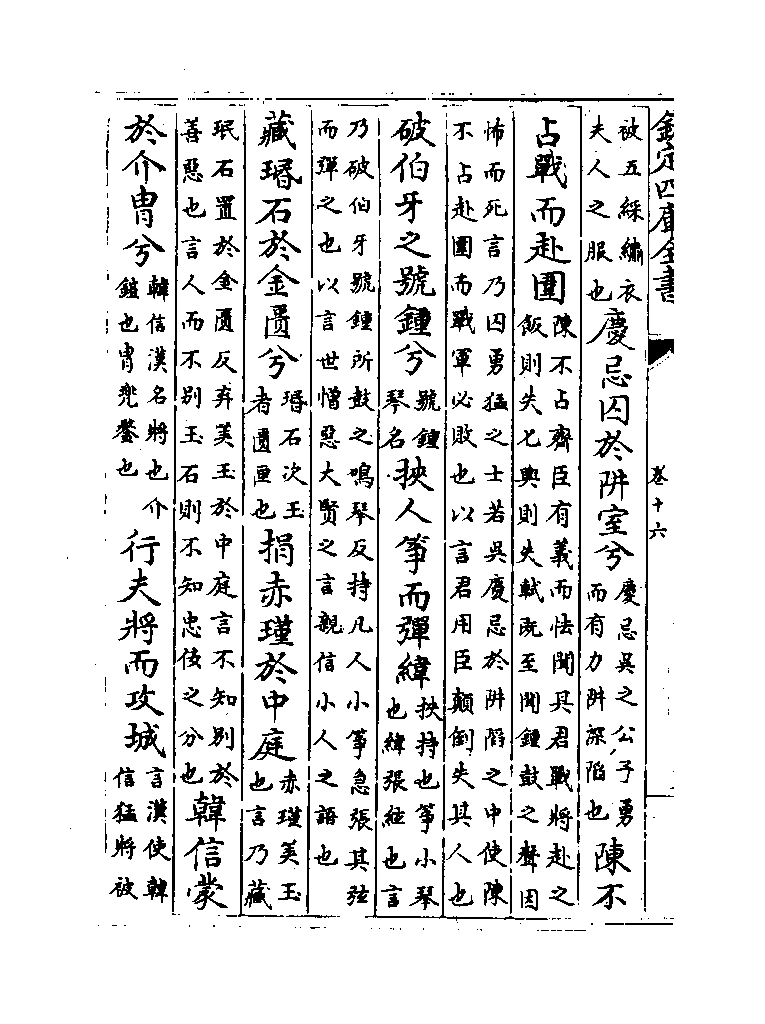 欽定四庫全書
卷十六
被五綵繡衣
夫人之服也
慶忌囚於阱室兮
慶忌吳之公子勇
而有力阱深陷也
陳不
占戰而赴圍
陳不占齊臣有義而怯聞其君戰將赴之
飯則失匕輿則失軾既至聞鍾鼓之聲因
怖而死言乃囚勇猛之士若吳慶忌於阱陷之中使陳
不占赴圍而戰軍必敗也以言君用臣顛倒失其人也
破伯牙之號鍾兮
號鍾
琴名
挾人箏而彈緯
挾持也箏小琴
也緯張絃也言
乃破伯牙號鍾所鼓之鳴琴反持凡人小箏急張其弦
而彈之也以言世憎惡大賢之言親信小人之語也
藏瑉石於金匱兮
瑉石次玉
者匱匣也
捐赤瑾於中庭
赤瑾美玉
也言乃藏
珉石置於金匱反弃美玉於中庭言不知別於
善惡也言人而不別玉石則不知忠佞之分也
韓信蒙
於介胄兮
韓信漢名將也介
鎧也胄兜鍪也
行夫將而攻城
言漢使韓
信猛將被